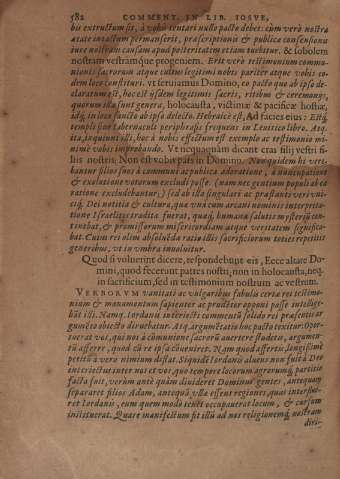 582 COMMENT. IN LIB. IOSVE,
bis extructum sit, à vobis tentari nullo pacto debet: cùm verò nostra
ætate intactum permanserit, præscriptionis & publicæ consensionis
iure nostram causam apud posteritatem etiam tuebitur. & sobolem
nostram vestrámque progeniem. Erit verò testimonium commu-
nionis sacrorum atque cultus legitimi nobis pariter atque vobis eo-
dem loco constituti. vt seruiamus Domino, eo pacto quo ab ipso de-
claratum est, hoc est ijsdem legitimis sacris, ritibus & ceremonijs,
quorum ista sunt genera, holocausta, victimæ & pacificæ hostiæ,
idq́; in loco sancto ab ipso delecto. Hebraicè est, Ad facies eius: Est q́;
templi siue tabernaculi periphrasis frequens in Leuitico libro. Atq;
ita, inquiunt illi, hoc à nobis effectum est exemplo ac testimonio mi-
nimè vobis improbando. Vt nequaquàm dicant cras filij vestri fi-
liis nostris, Non est vobis pars in Domino. Non quidem hi veri-
bantur filios suos à communi ac publica adoratione, à nuncupatione
& exolutione votorum excludi posse. (nam nec gentium populi ab ea
ratione excludebantur,) sed ab illa singulari ac præstanti veri nuti-
tiq́. Dei notitia & cultura, quæ vnà cum arcani nominis interpreta-
tione Israelitis tradita fuerat, quæq́; humanæ salutis mysteriū con-
tinebat, & promissorum misericordiam atque veritatem significa-
bat. Cuius rei olim absolutæ ratio illis sacrificiorum toties repetitis
generibus, vt in vmbra inuoluitur.
Quod si voluerint dicere, respondebunt eis, Ecce altare Do-
mini, quod fecerunt patres nostri, non in holocausta, neq;
in sacrificium, sed in testimonium nostrum ac vestrum.
VERNORVM vanitati ac vulgaribus fabulis certæ rei testimo-
nium & monumentum sapienter ac prouiter opponi posse intellige-
bāt illi. Namq́. Iordanis interiecti commentū solido rei præsentis ar-
gumēto obiecto diruebatur. Atq. argumētatio hoc pacto texitur: Opor-
tuerat vos, qui nos à communione sacrorū auertere studetis, argumen-
tū afferre, quod cū re ipsa conueniret. Nam quod affertis, longissimè
petitū à vero nimium distat. Siquidē Iordanis alueus non fuit à Deo
interiectus inter nos et vos, quo tempore locorum agrorumq́; partitio
facta fuit, verùm antè quàm diuideret Dominus gentes, antequam
separaret filios Adam, antequā vlla essent regiones, quas interflue-
ret Iordanis, eum quem modo tenet occupauerat locum, & cursum
instituerat. Quare manifestum fit illū ad nos religionemq́; nostram
diri-